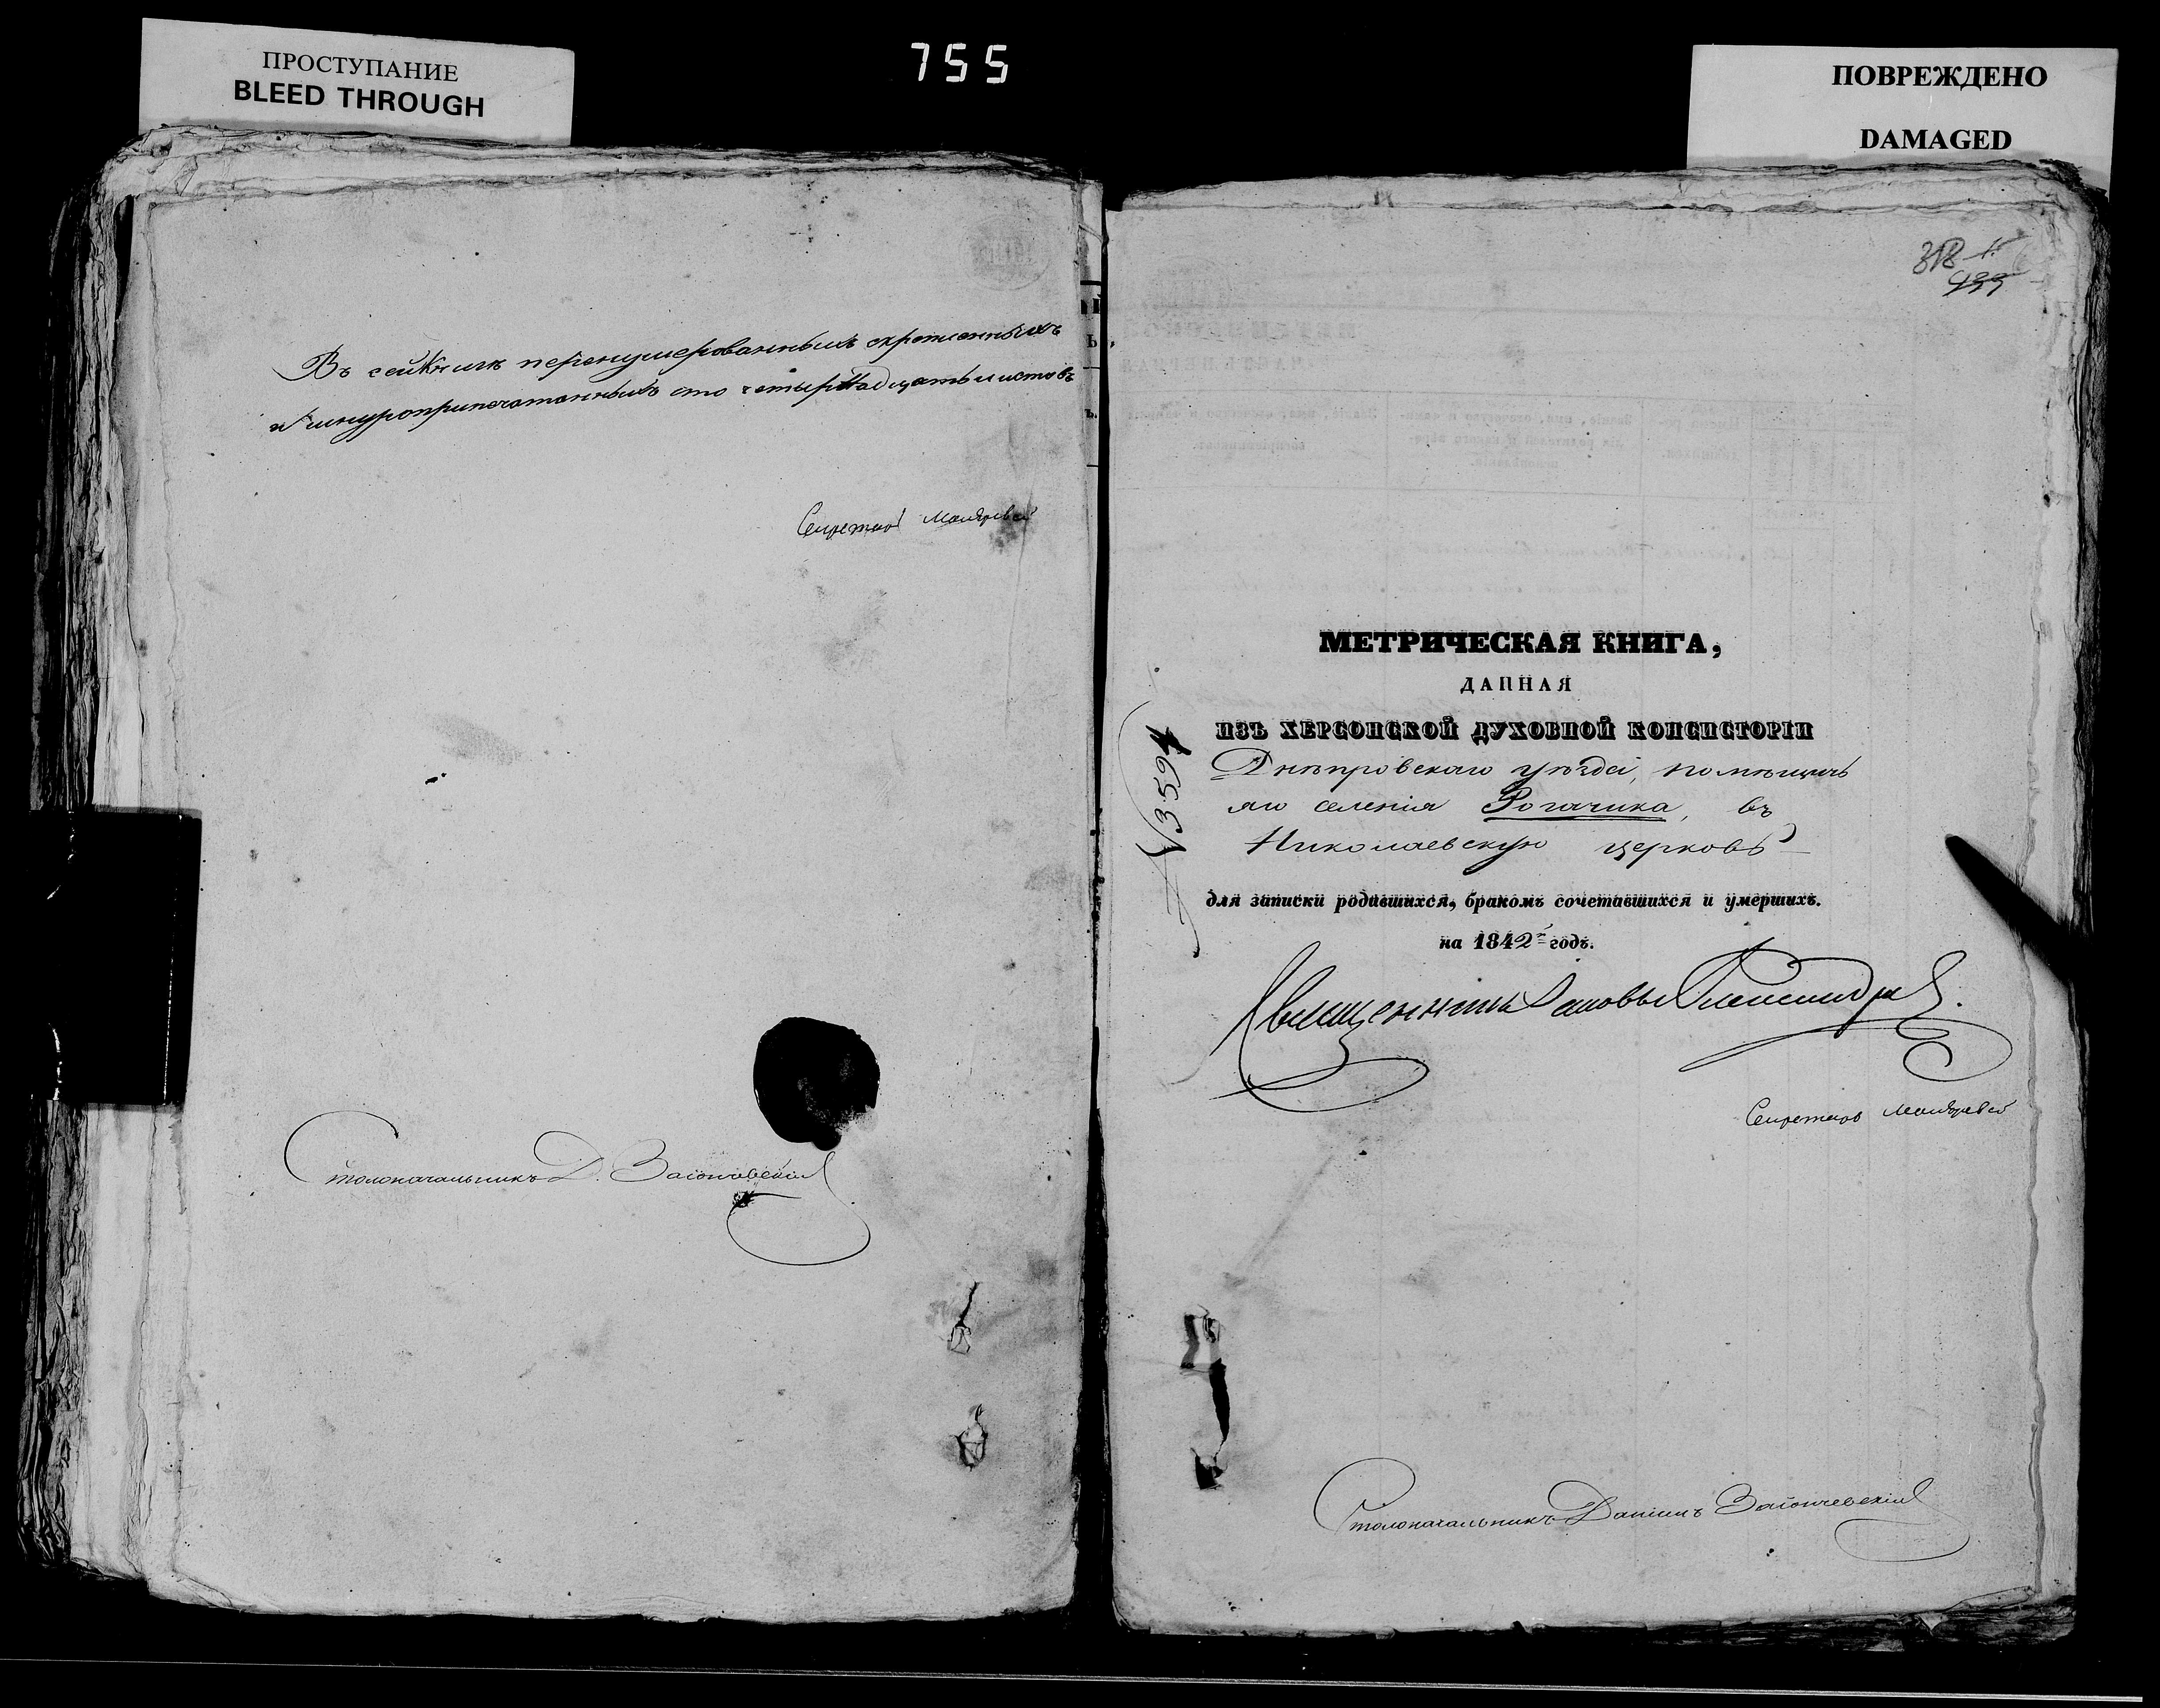 ПРОСТУПАНИЕ
BLEED THROUGH
755
ПОВРЕЖДЕНО
DAMAGED
Въ сей Книгѣ перенумерованныхъ скрепленныхъ
и шнуроприпечатанныхъ сто четырнадцать листовъ
Секретарь
Столоначальникъ Д. Заіончевскій
318
МЕТРИЧЕСКАЯ КНИГА,
ДАННАЯ
ИЗЪ ХЕРСОНСКОЙ ДУХОВНОЙ КОНСИСТОРІИ
Днѣпровскаго уѣзда, помѣщичь
яго селенія Рогачика, въ
Николаевскую церковь
для записки родившихся, бракомъ сочетавшихся и умершихъ.
на 1842й годъ.
№ 3594
Священникъ
Секретарь
Столоначальникъ Даніилъ Заіончевскій